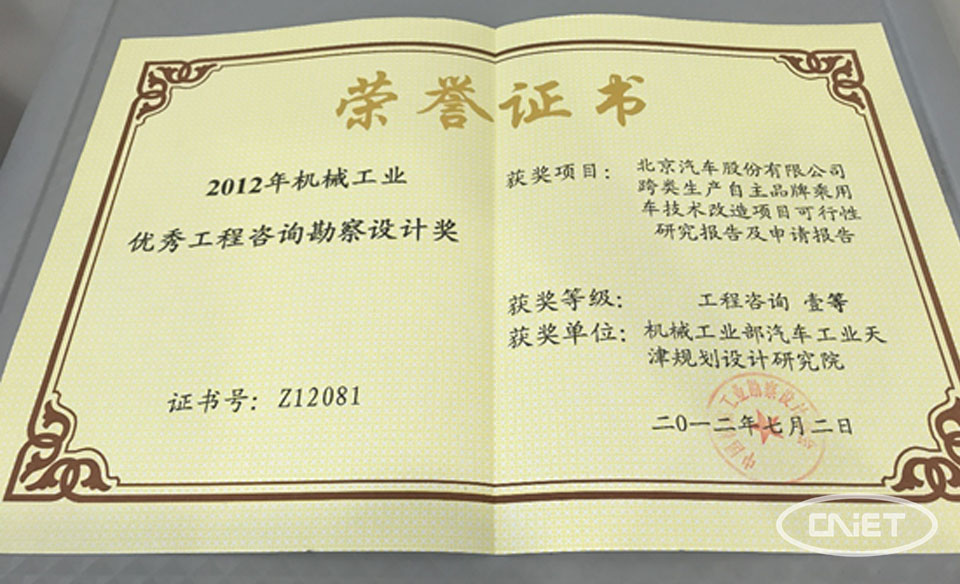 荣誉证书
2012年机械工业
优秀工程咨询勘察设计奖
证书号：Z12081
获奖项目：北京汽车股份有限公司
跨类生产自主品牌乘用
车技术改造项目可行性
研究报告及申请报告
获奖等级：工程咨询 壹等
获奖单位：机械工业部汽车工业天
津规划设计研究院
二0一二年七月二日
中国
工业勘察设
CNIET